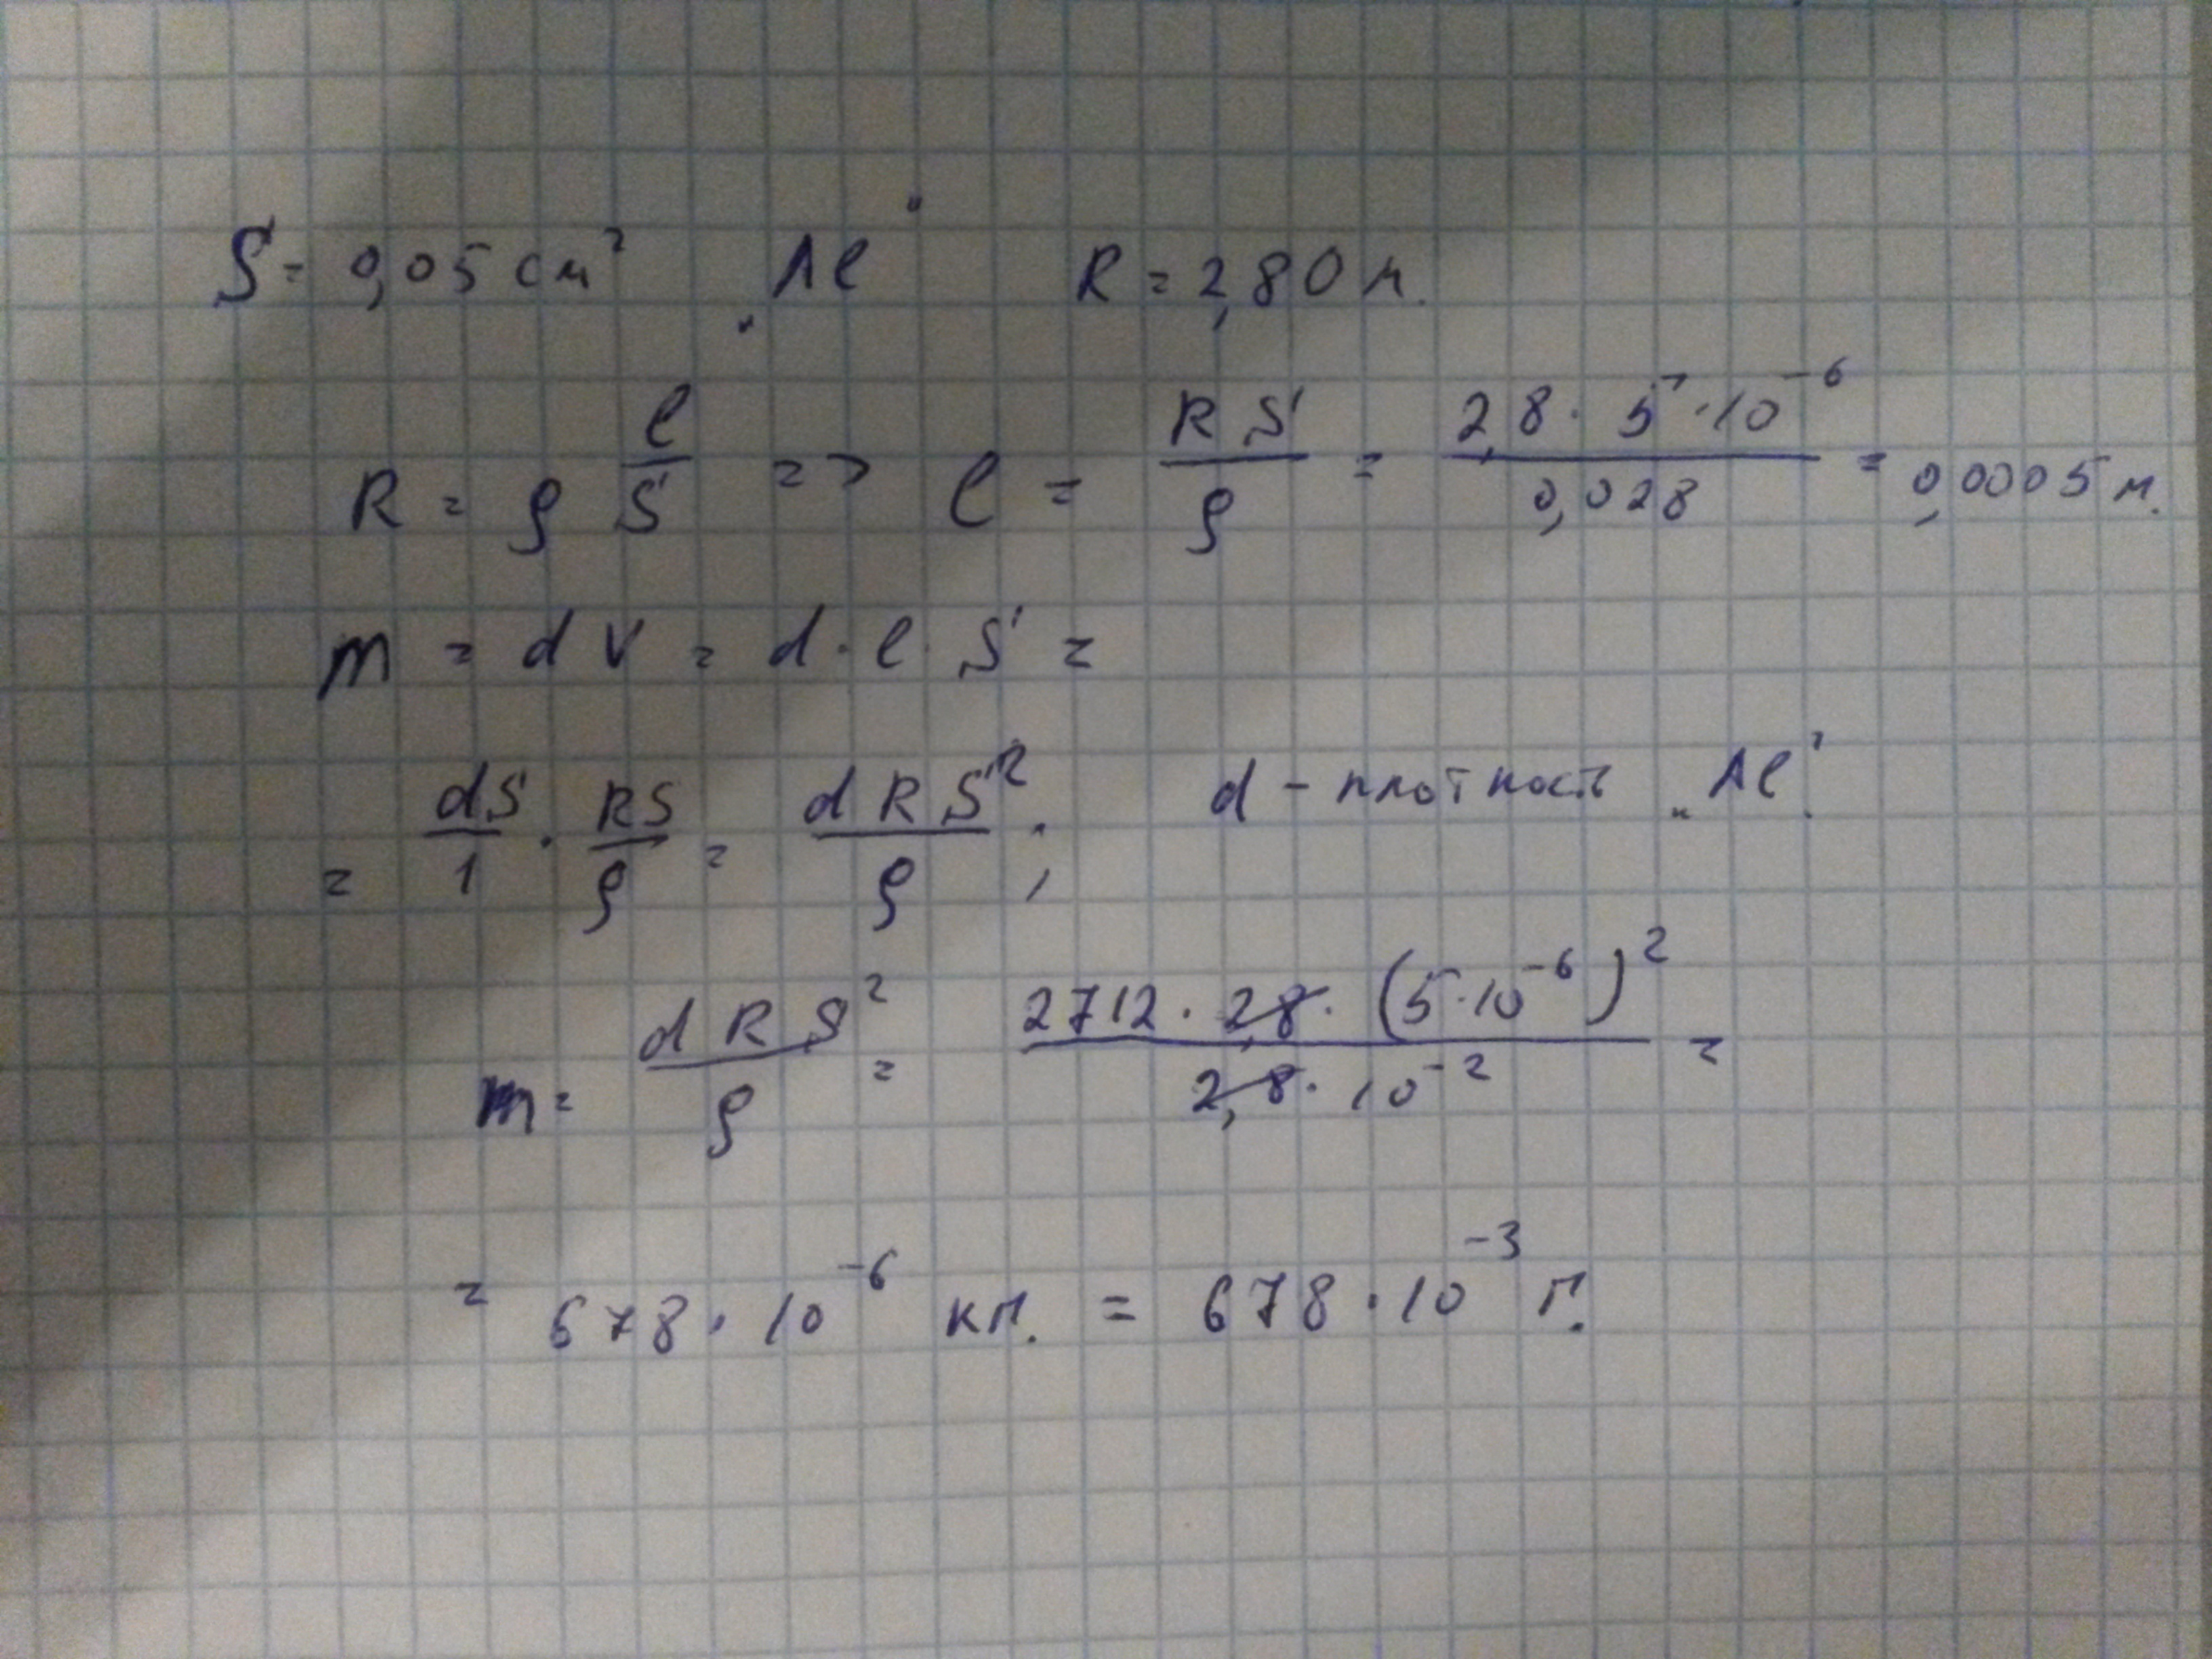 S = 0,05 см² „Al" R = 2,8 Ом.
R = ρ l/S => l = RS/ρ = 2,8 · 5 · 10⁻⁶/0,028 = 0,0005 м.
m = dV = d · l · S =
= dS/1 · RS/ρ = dRS²/ρ ; d – плотность „Al"
m = dRS²/ρ = 2712 · 2,8 · (5 · 10⁻⁶)²/2,8 · 10⁻² =
= 678 · 10⁻⁶ кг. = 678 · 10⁻³ г.